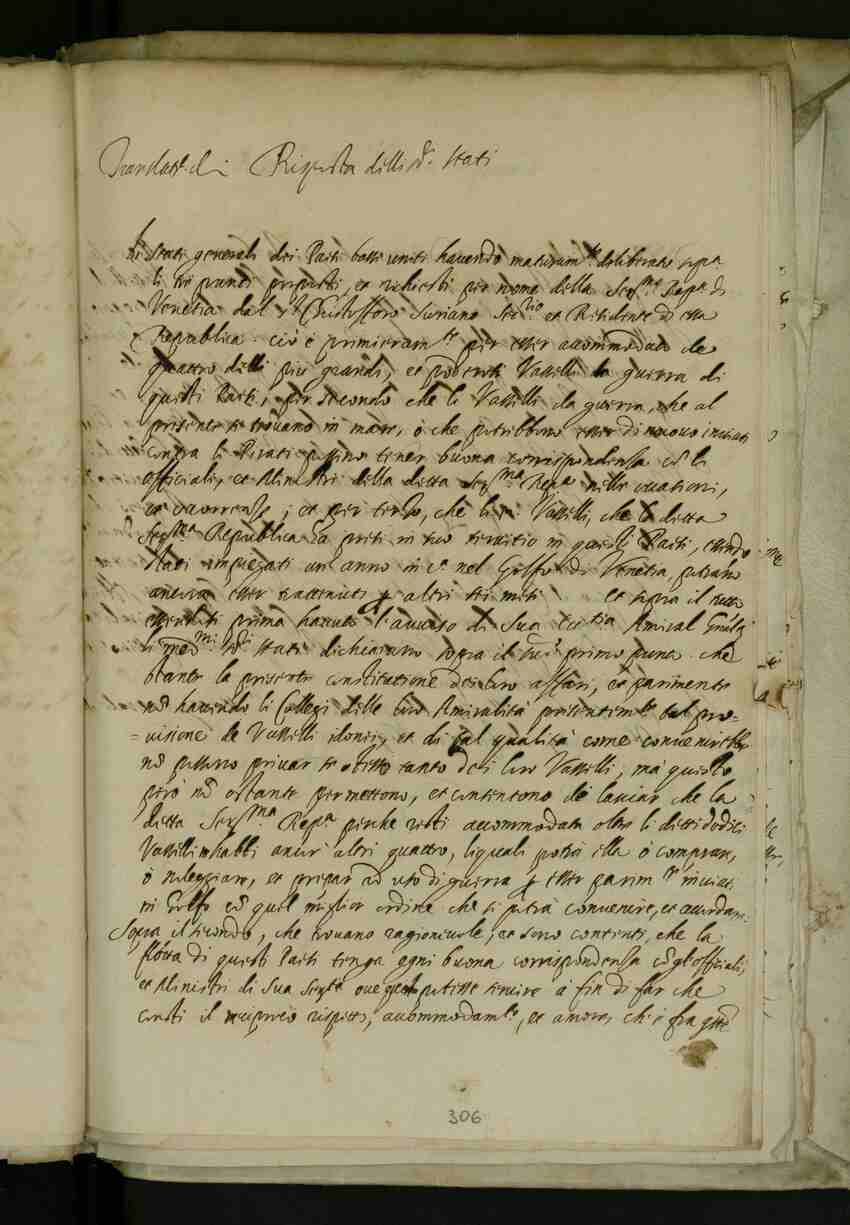 Translat.e di Risposta delli S.i Stati
Li Stati generali dei Paesi bassi uniti havendo maturam.te deliberato sopra
li tre punti proposti, et richiesti per nome della Ser.ma Rep.a di
Venetia dal S.r Christofforo Suriano Seg.rio et Residente di essa
Republica. ciò è primieram.te per esser accommodata de
quattro delli più grandi, et poderosi Vasselli da guerra di
questi Paesi, per secondo che li Vasselli da guerra, che al
presente si trovano in mare, ò che potrebbono esser di nuovo inviati
contra li Pirati possino tener buona corrispondenza cõ li
officiali, et Ministri della detta Ser.ma Rep.a nelle occasioni,
et occorrenze; et per terzo, che li Vasselli, che la detta
Ser.ma Republica ha presi in suo servitio in questi Paesi, essendo
stati impiegati un anno in c.a nel Golfo di Venetia, potrãno
ancora esser trattenuti p altri sei mesi et sopra il tutto
essendosi prima havuto l'avviso di Sua Ecc.tia Amiral Gñale
li med.mi S.ri Stati dichiarano sopra il primo punto che
stante la presente constitutione dei loro affari, et parimente
nõ havendo li Collegi delle loro Amiralità presentem.te tal pro=
=visione de Vasselli idonei, et di tal qualità come convenirebbe
nõ possono privar se stessi tanto dei loro Vasselli, mà questo
però nõ ostante permettono, et consentono de lasciar che la
detta Ser.ma Rep.a perche resti accommodata oltre li detti dodici
Vasselli habbi ancor altri quattro, li quali potrà ella ò comprar,
ò noleggiare, et preparar ad uso di guerra p esser parim.te inviati
in Golfo cõ quel miglior ordine che si potrà convenire, et accordare.
Sopra il secondo, che trovano ragionevole, et sono contenti, che la
flotta di questi Paesi tenga ogni buona corrispondenza cõ gl'officiali,
et Ministri di Sua Ser.tà ove potesse servire à fin di far che
consti il reciproco rispetto, accommodam.to, et amore, ch'è fra
306